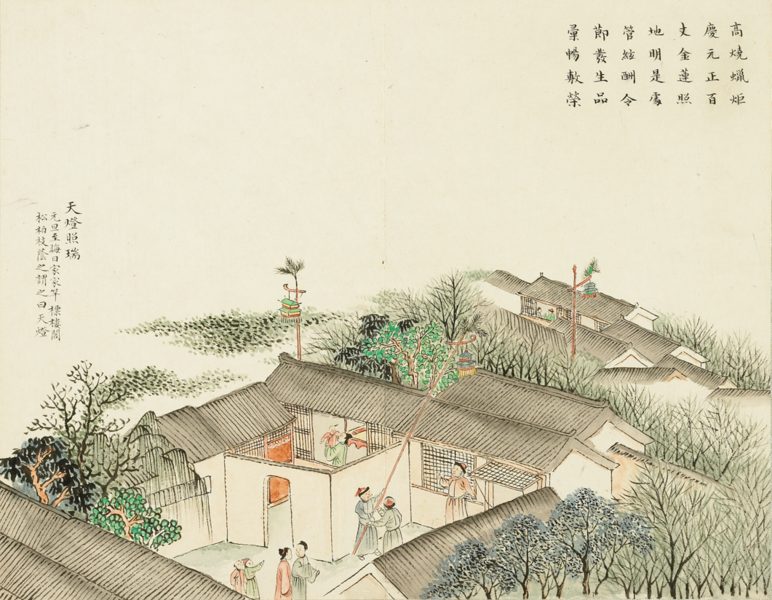 高燒蠟炬
慶元正百
丈金蓮照
地明是處
管絃酬令
節發生品
彙暢敷榮
天燈照瑞
元旦至晦日家家竿標樓閣
松柏枝蔭之謂之曰天燈